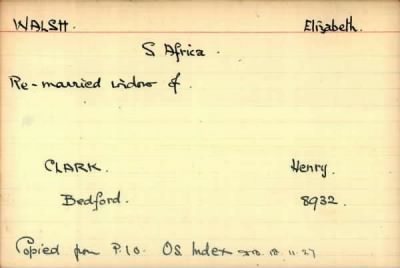 WALSH. Elizabeth.
S Africa.
Re-married widow of.
CLARK. Henry.
Bedford. 8932.
Copied from P.10. OS Index 18.11.27